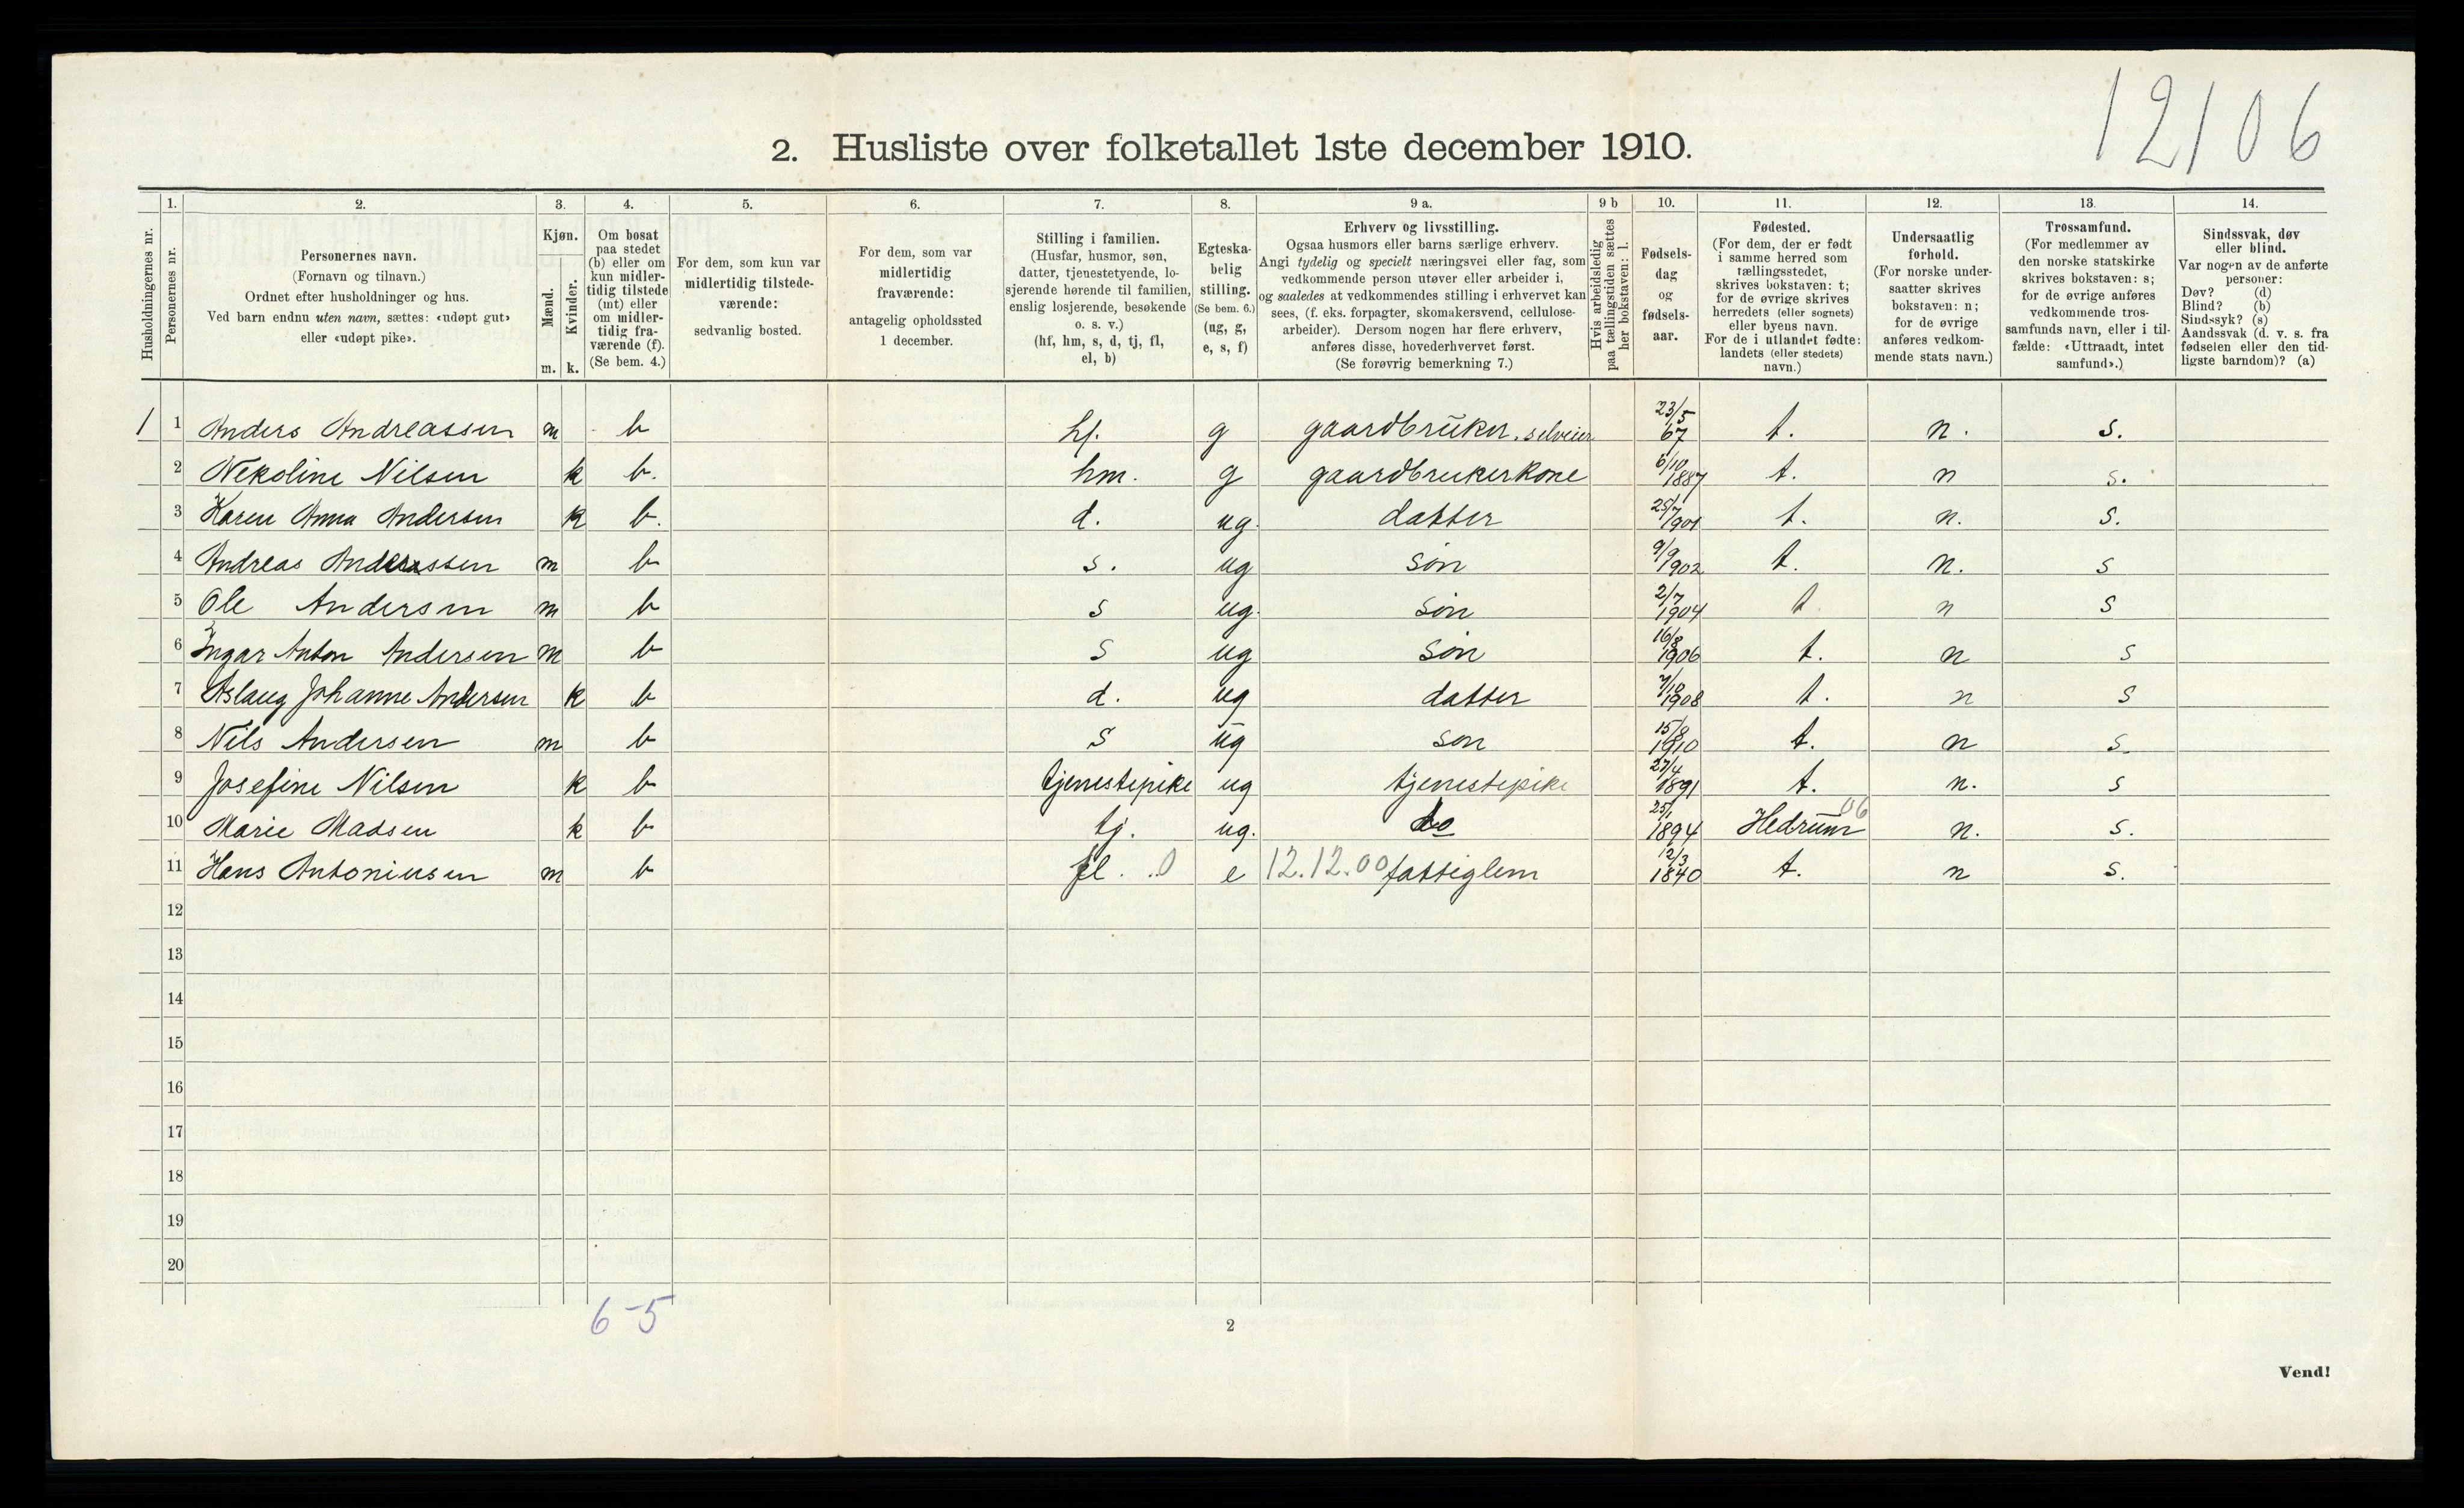 12106
2. Husliste over folketallet 1ste december 1910.
Husholdningernes nr.
1. Personernes nr.
2. Personernes navn. (Fornavn og tilnavn.) Ordnet efter husholdninger og hus. Ved barn endnu uten navn, sættes: «udøpt gut» eller «udøpt pike».
3. Kjøn. Mænd. m. Kvinder. k.
4. Om bosat paa stedet (b) eller om kun midlertidig tilstede (mt) eller om midlertidig fraværende (f). (Se bem. 4.)
5. For dem, som kun var midlertidig tilstedeværende: sedvanlig bosted.
6. For dem, som var midlertidig fraværende: antagelig opholdssted 1 december.
7. Stilling i familien. (Husfar, husmor, søn, datter, tjenestetyende, losjerende hørende til familien, enslig losjerende, besøkende o. s. v.) (hf, hm, s, d, tj, fl, el, b)
8. Egteskabelig stilling. (Se bem. 6.) (ug, g, e, s, f)
9 a. Erhverv og livsstilling. Ogsaa husmors eller barns særlige erhverv. Angi tydelig og specielt næringsvei eller fag, som vedkommende person utøver eller arbeider i, og saaledes at vedkommendes stilling i erhvervet kan sees, (f. eks. forpagter, skomakersvend, cellulosearbeider). Dersom nogen har flere erhverv, anføres disse, hovederhvervet først. (Se forøvrig bemerkning 7.)
9 b Hvis arbeidsledig paa tællingstiden sættes her bokstaven: l.
10. Fødselsdag og fødselsaar.
11. Fødested. (For dem, der er født i samme herred som tællingsstedet, skrives bokstaven: t; for de øvrige skrives herredets (eller sognets) eller byens navn. For de i utlandet fødte: landets (eller stedets) navn.)
12. Undersaatlig forhold. (For norske undersaatter skrives bokstaven: n; for de øvrige anføres vedkommende stats navn.)
13. Trossamfund. (For medlemmer av den norske statskirke skrives bokstaven: s; for de øvrige anføres vedkommende trossamfunds navn, eller i tilfælde: «Uttraadt, intet samfund».)
14. Sindssvak, døv eller blind. Var nogen av de anførte personer: Døv? (d) Blind? (b) Sindssyk? (s) Aandssvak (d. v. s. fra fødselen eller den tidligste barndom)? (a)
1 1 Anders Andreassen m b hf. g gaardbruker, selveier 23/5 67 t. n. s.
2 Nekoline Nilsen k b. hm. g gaardbrukerkone 6/10 1887 t. n s.
3 Karen Anna Andersen k b. d. ug. datter 25/7 1901 t. n. s.
4 Andreas Anderssen m b s. ug søn 9/9 902 t. n. s
5 Ole Andersen m b s ug. søn 2/7 1904 t. n s
6 Ingar Anton Andersen m b s ug søn 16/8 1906 t. n s
7 Aslaug Johanne Andersen k b d. ug datter 7/10 1908 t. n s
8 Nils Andersen m b s ug søn 15/8 1910 t. n s.
9 Josefine Nilsen k b tjenestepike ug tjenestepike 27/4 1891 t. n. s
10 Marie Madsen k b tj. ug. do 25/1 1894 Hedrum 06 n. s.
11 Hans Antoniusen m b fl. .0 e 12.12.00 fattiglem 12/3 1840 t. n s.
12
13
14
15
16
17
18
19
20
6-5
2
Vend!